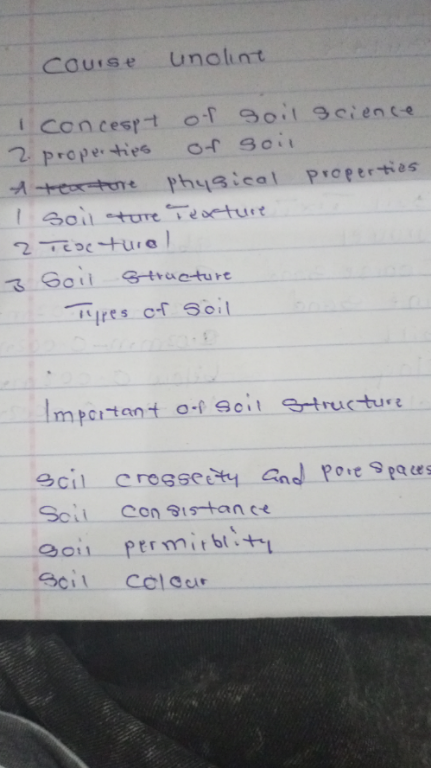 course unolint
1 concespt of soil science
2 properties of soil
physical properties
1 soil Texture
2 Textural
3 Soil structure
Types of soil
Important of soil structure
soil crosseity and pore spaces
Soil consistance
soil permirblity
soil colour